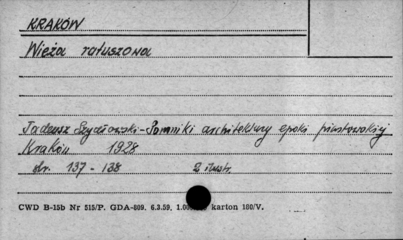 KRAKÓW
Wieża ratuszowa
Tadeusz Szydłowski - Pomniki architektury epoki piastowskiej
Kraków 1928
str. 137 - 138 2 ilustr.
CWD B-15b Nr 515/P. GDA-809. 6.3.59. 1.00 karton 180/V.